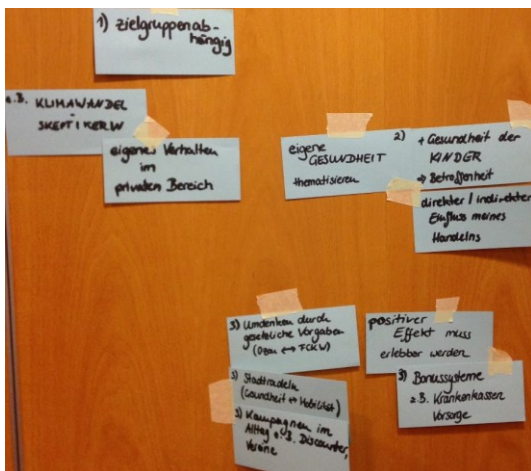 1) zielgruppenab-
hängig
z.B. KLIMAWANDEL
-
SKEPTIKERN
eigenes Verhalten
im
privaten Bereich
eigene
GESUNDHEIT
thematisieren
2) + Gesundheit der
KINDER
⇒ Betroffenheit
direkter / indirekter
Einfluss meines
Handelns
3) Umdenken durch
gesetzliche Vorgaben
(Ozon ↔ FCKW)
3) Stadtradeln
(Gesundheit ↔ Mobilität)
3) Kampagnen im
Alltag z.B. Discounter,
Vereine
positiver
Effekt muss
erlebbar werden
3) Bonussysteme
z.B. Krankenkassen
Vorsorge